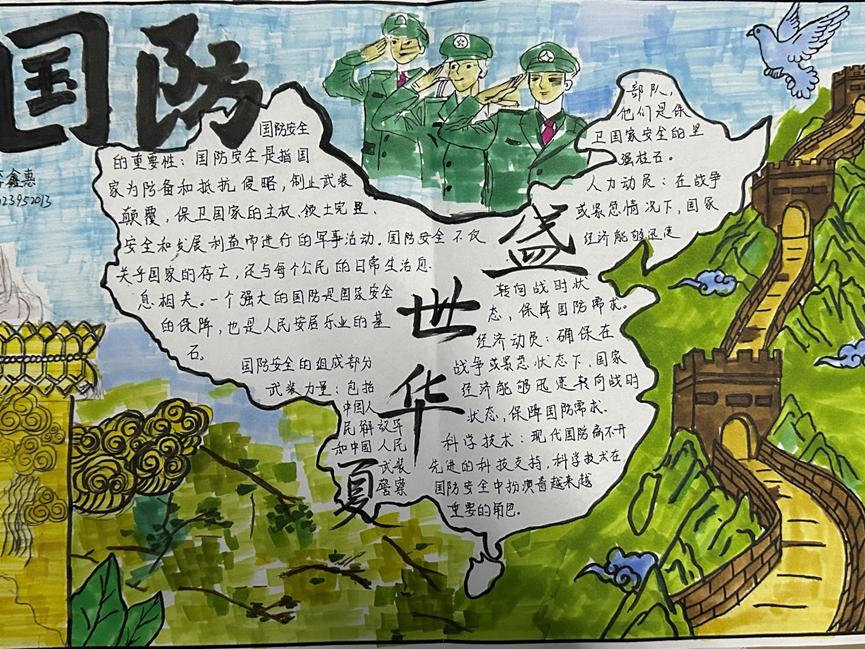 国防
鑫惠
23952013
国防安全
的重要性：国防安全是指国
家为防备和抵抗侵略，制止武装
颠覆，保卫国家的主权、领土完整、
安全和发展利益而进行的军事活动。国防安全不仅
关乎国家的存亡，还与每个公民的日常生活息
息相关。一个强大的国防是国家安全
的保障，也是人民安居乐业的基
石。
国防安全的组成部分
武装力量：包括
中国人
民解放军
和中国人民
武装
警察
部队，
他们是保
卫国家安全的坚
强柱石。
人力动员：在战争
或紧急情况下，国家
经济能够迅速
转向战时状
态，保障国防需求。
经济动员：确保在
战争或紧急状态下，国家
经济能够迅速转向战时
状态，保障国防需求。
科学技术：现代国防离不开
先进的科技支持，科学技术在
国防安全中扮演着越来越
重要的角色。
盛
世
华
夏